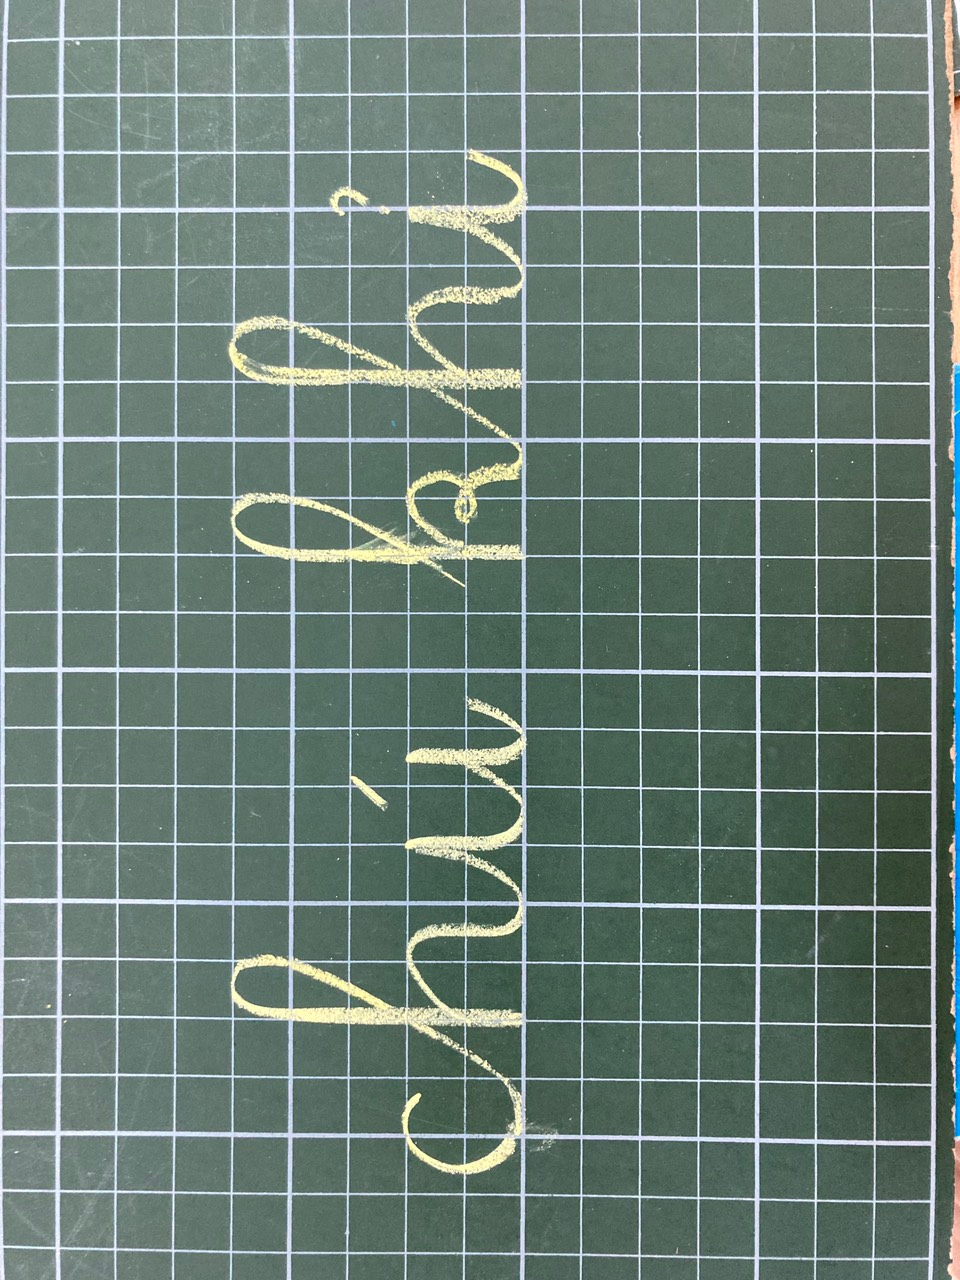 chú khỉ